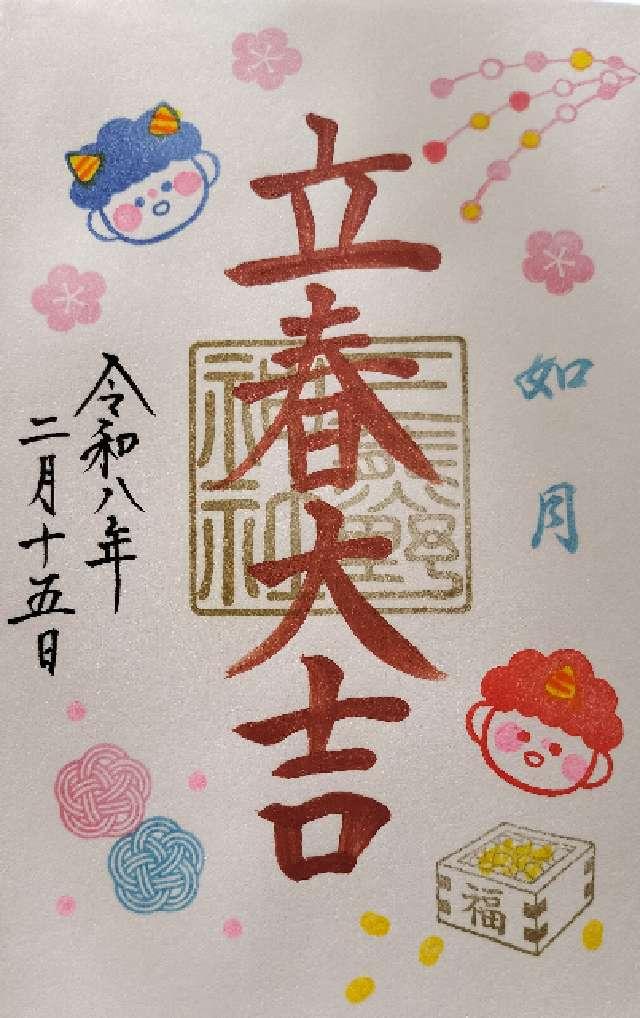 如月
立春大吉
三熊野
神社
令和八年
二月十五日
福